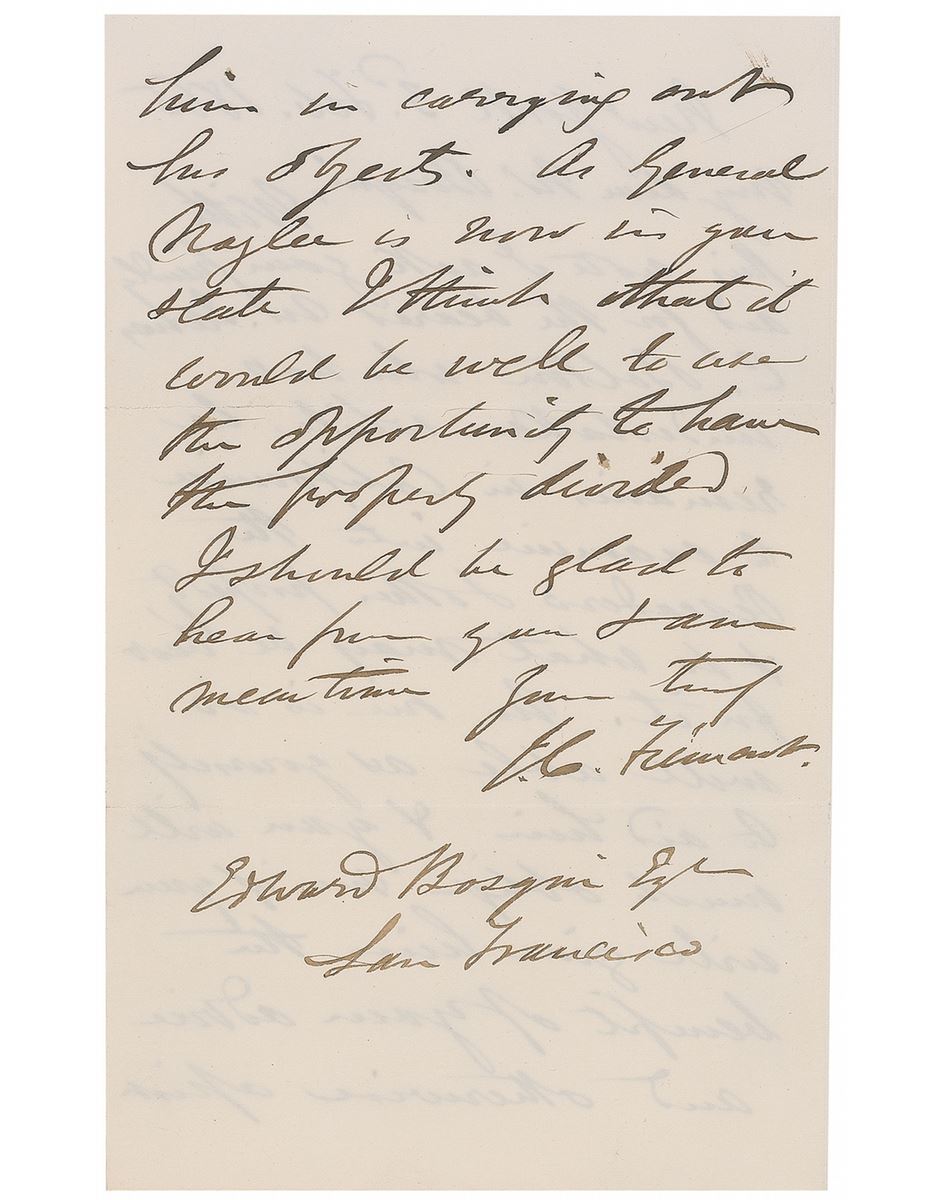 him in carrying out
his objects. As General
Naglee is now in your
state I think that it
would be well to use
the opportunity to have
the property divided
I should be glad to
hear from you & am
meantime Yours truly
J. C. Frémont.
Edward Bosqui Esqr
San Francisco